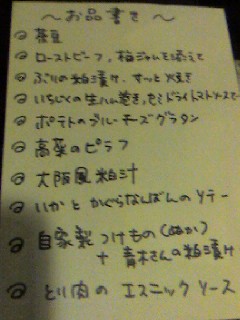 〜お品書き〜
@ 茶豆
@ ローストビーフ,梅ジャムを添えて
@ ぶりの粕漬け,さっと焼き
@ いちじくの生ハム巻き,ドライトマトソースで
@ ポテトのブルーチーズグラタン
@ 高菜のピラフ
@ 大阪風粕汁
@ いかとかぐらなんばんのソテー
@ 自家製つけもの(ぬか)
+ 青木さんの粕漬け
@ とり肉のエスニックソース